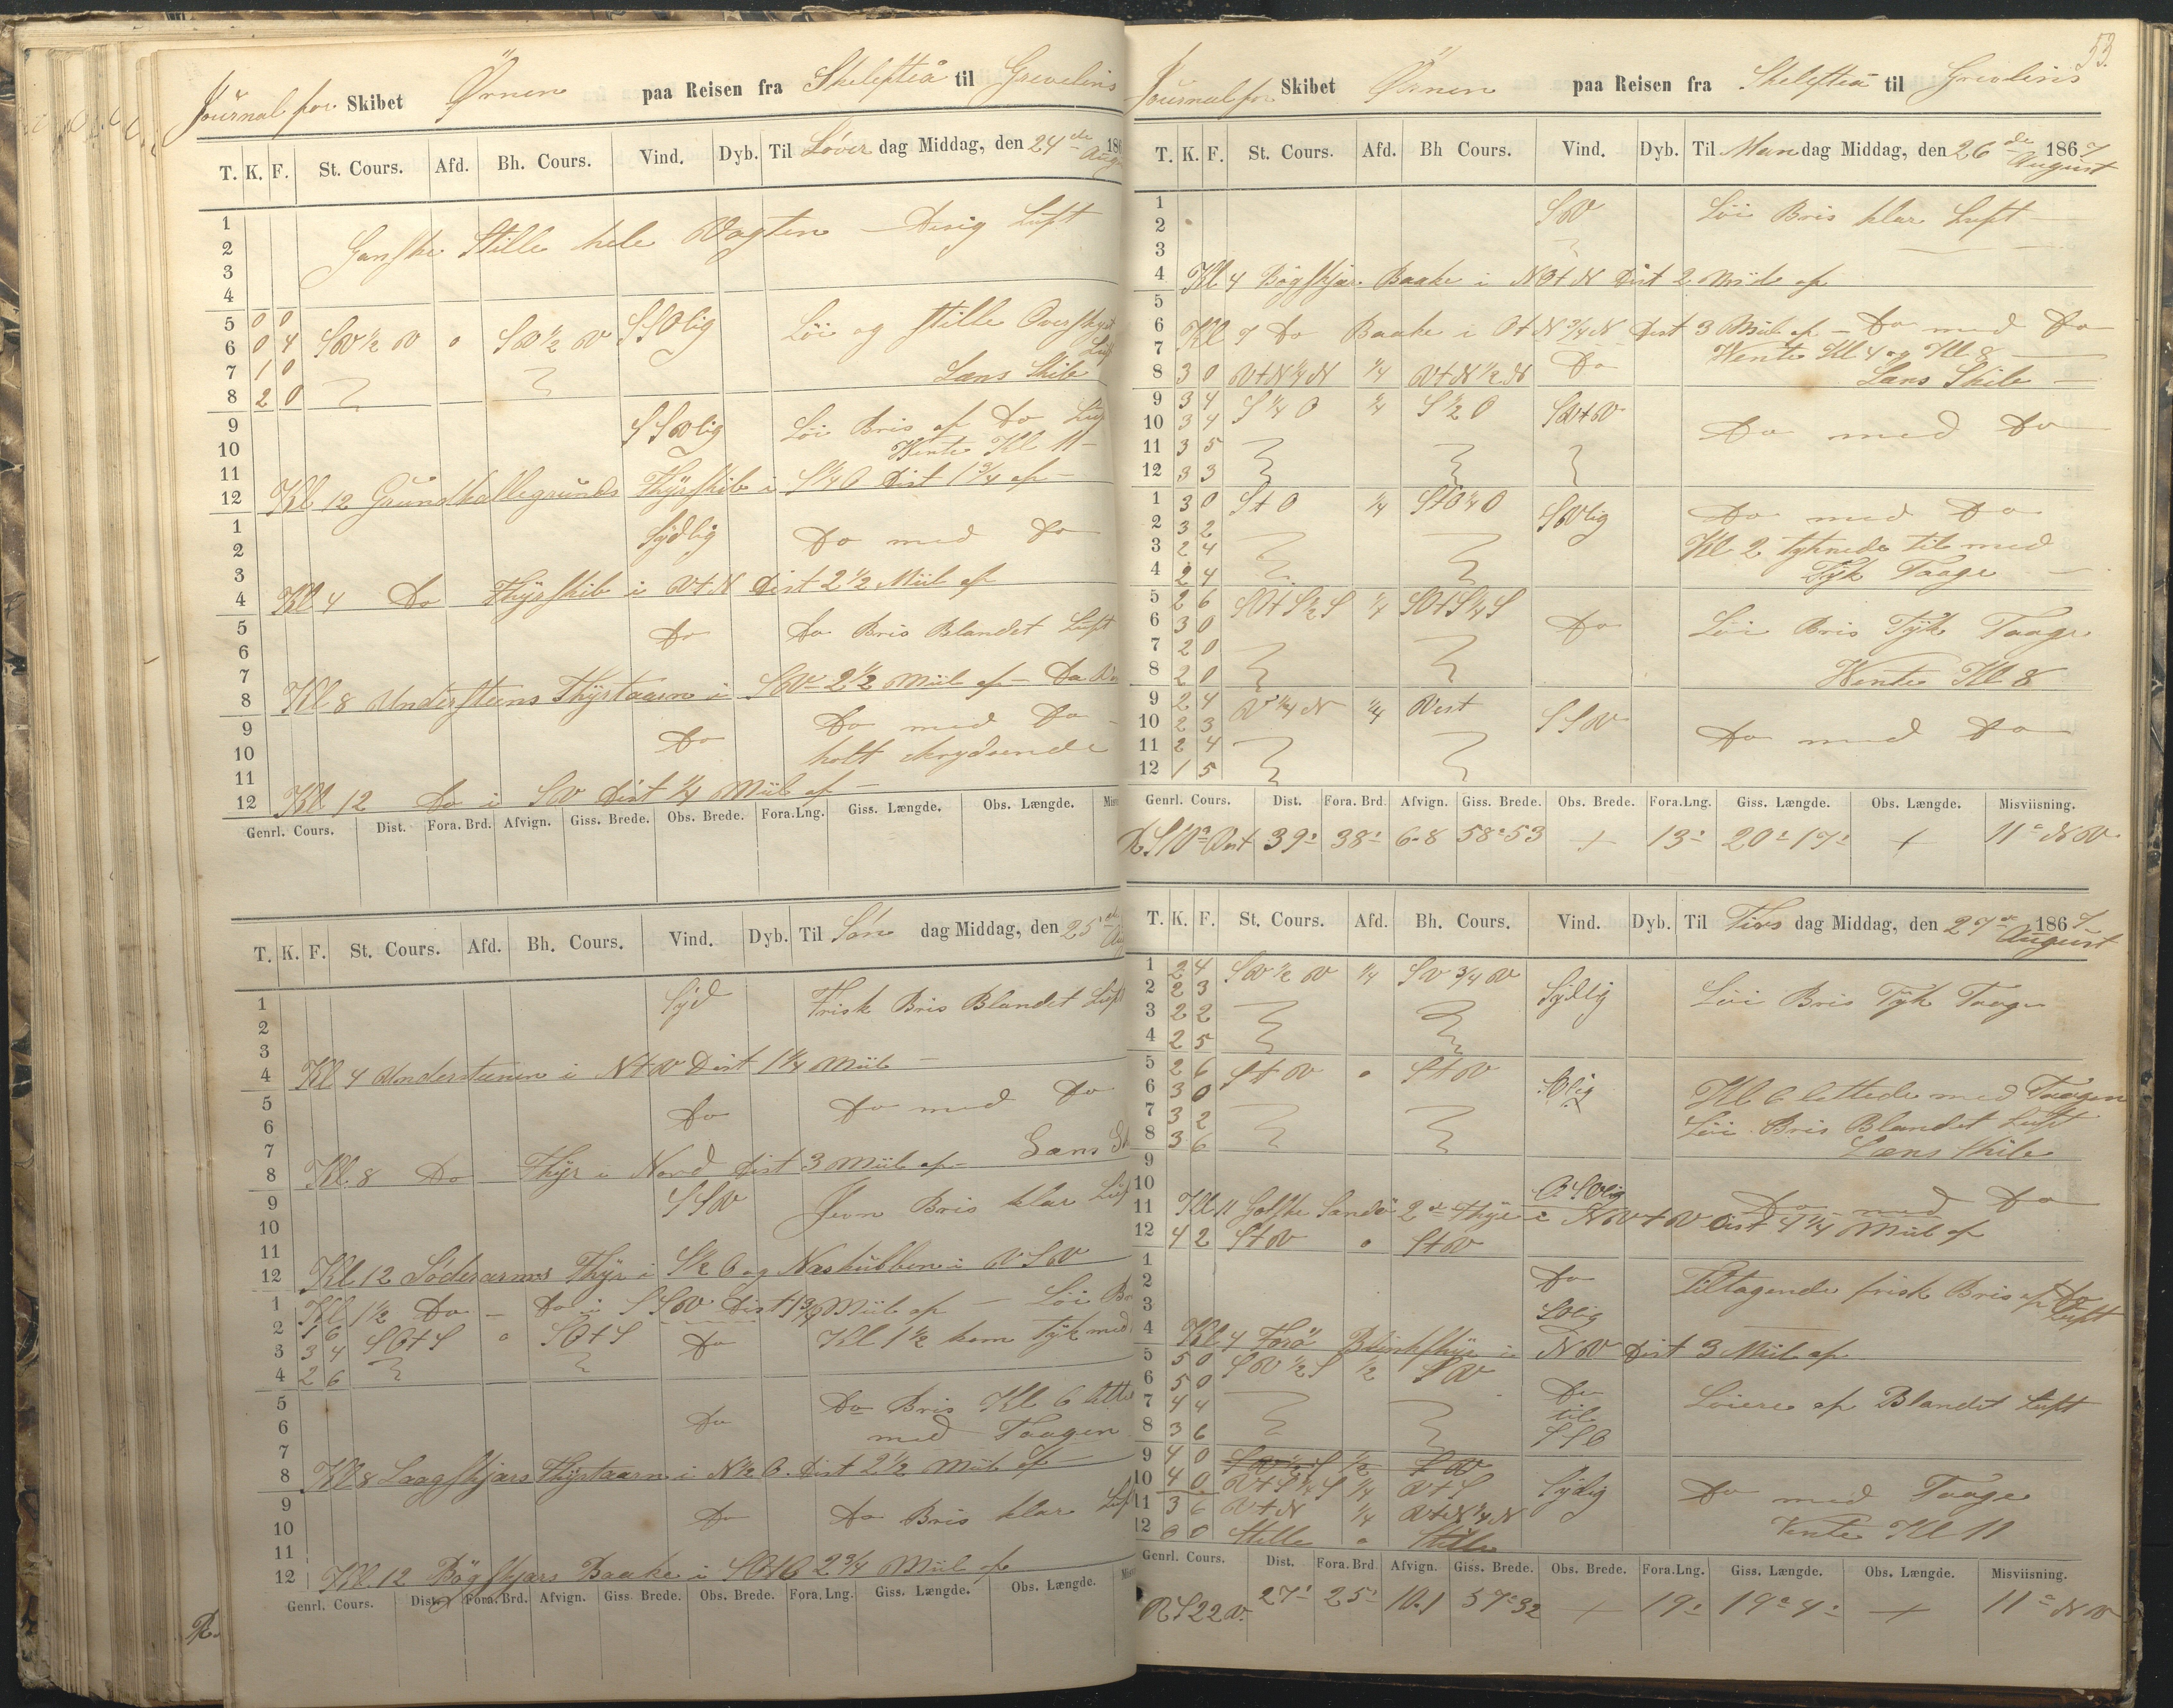 Journal for Skibet Ørnen paa Reisen fra Skelefteå til Grevelins
T. K. F. St. Cours. Afd. Bh. Cours. Vind. Dyb. Til Løver dag Middag, den 24de Aug 186
1
2 Ganske Stille hele Vagten — Disig Luft
3
4
5 0 0 SSOlig Löi og stille Overskyet
6 0 4 SW ½ W 0 SW ½ W Luft
7 1 0 Læns Skib
8 2 0
9 SSWlig Löi Bris af Do Luft
10 Wente Kl 11 —
11
12 Kl 12 Grundkallegrunds Fhÿrskib i S¼O Dist 1¾ af —
1 Sÿdlig Do med Do
2
3
4 Kl 4 Do Fhÿrskib i W t N Dist 2½ Miil af
5 Do Do Bris Blandet Luft
6
7
8 Kl 8 Understeens Fhÿrtaarn i SW 2½ Miil af —
9 Do Do med Do
10 holt krydsende
11
12 Kl 12 Do i SW Dist ¼ Miil af —
Genrl. Cours. Dist. Fora. Brd. Afvign. Giss. Brede. Obs. Brede. Fora.Lng. Giss. Længde. Obs. Længde.
T. K. F. St. Cours. Afd. Bh. Cours. Vind. Dyb. Til Sön dag Middag, den 25de
1 Sÿd Frisk Bris Blandet Luft
2
3
4 Kl 4 Understeenen i N t W Dist 1¼ Miil —
5 Do Do med Do
6
7 Læns
8 Kl. 8 Do Fhÿr i Nord Dist 3 Miil af —
9 SSW Jevn Bris klar Luft
10
11
12 Kl 12 Söderarms Fhÿr i S½O og Naskubben i WSW
1 Kl 1½ Do — Do i SSW Dist 1¾ Miil af — Löi
2 1 6 SO t S 0 SO t S Do Kl 1½ kom Tÿk med
3 3 4
4 2 6
5 Do Bris Kl 6 lette
6 Do med Taagen
7
8 Kl 8 Laagskjærs Fhÿrtaarn i N½O. Dist 2½ Miil af —
9 Do Do Bris klar Luft
10
11
12 Kl. 12 Bögskjærs Baake i SO t O 2¾ Miil af
Genrl. Cours. Dist. Fora. Brd. Afvign. Giss Brede. Obs. Brede. Fora. Lng. Giss. Længde. Obs. Længde.
R.
53.
Journal for Skibet Ørnen paa Reisen fra Skelefteå til Grevelins
T. K. F. St. Cours. Afd. Bh Cours. Vind. Dyb. Til Man dag Middag, den 26de August 1867
1 SW Löi Bris klar Luft —
2
3
4 Kl 4 Bögskjær. Baake i NO t N Dist 2 Miil af
5
6 Kl 7 Do Baake i O t N ¾ N Dist 3 Miil af — Do med Do
7 Wente Kl 4 og Kl 8 —
8 3 0 W t N ¼ N ¼ W t N ½ N Do Læns Skib —
9 3 4 S ¼ O ¼ S ½ O SW t W
10 3 4 Do med Do
11 3 5
12 3 3
1 3 0 S t O ¼ S t O ¼ O SWlig Do med Do
2 3 2 Kl 2 tÿknede til med
3 2 4 Tÿk Taage —
4 2 4
5 2 6 SO t S ½ S ¼ SO t S ¼ S
6 3 0 Do Löi Bris Tÿk Taage
7 2 0
8 2 0 Wente Kl 8
9 2 4 W ¼ N ¼ West SSW
10 2 3 Do med Do
11 2 4
12 1 5
Genrl. Cours. Dist. Fora. Brd. Afvign. Giss. Brede. Obs. Brede. Fora.Lng. Giss. Længde. Obs. Længde. Misviisning.
R. S 10° Vest 39' 38' 6.8 58°53 + 13' 20°17' + 11° NW.
T. K. F. St. Cours. Afd. Bh. Cours. Vind. Dyb. Til Tirs dag Middag, den 27de August 1867
1 2 4 SW ½ W ¼ SW ¾ W
2 2 3 Sÿdlig Löi Bris Tÿk Taage
3 2 2
4 2 5
5 2 6 S t W 0 S t W
6 3 0 SOlig Kl 6 lettede med Taagen
7 3 2 Löi Bris Blandet Luft
8 3 6 Læns Skib
9
10 OSOlig Do med Do
11 Kl 11 Gotske Sandö 2de Fhÿre i NW t W Dist 4¼ Miil af
12 4 2 S t W 0 S t W
1
2 Do Tiltagende frisk Bris af Do
3 SOlig Luft
4 Kl 4 Forö Blinkfhÿr i NW Dist 3 Miil af
5 5 0 SW ½ S ½ SW
6 5 0 Do Löiere af Blandet Luft
7 4 4 til
8 3 6 SSO
9 4 0 SW ½ S ½ SW
10 4 0 W t S ¼ S ¼ W t S Sÿdlig Do med Taage
11 3 6 W t N ¼ W t N ¼ N Vente Kl 11
12 0 0 Stille 0 Stille
Genrl. Cours. Dist. Fora. Brd Afvign. Giss. Brede. Obs. Brede. Fora.Lng. Giss. Længde. Obs. Længde. Misviisning.
R S 22 W. 27' 25' 10.1 57°32 + 19' 19°4' + 11° NW